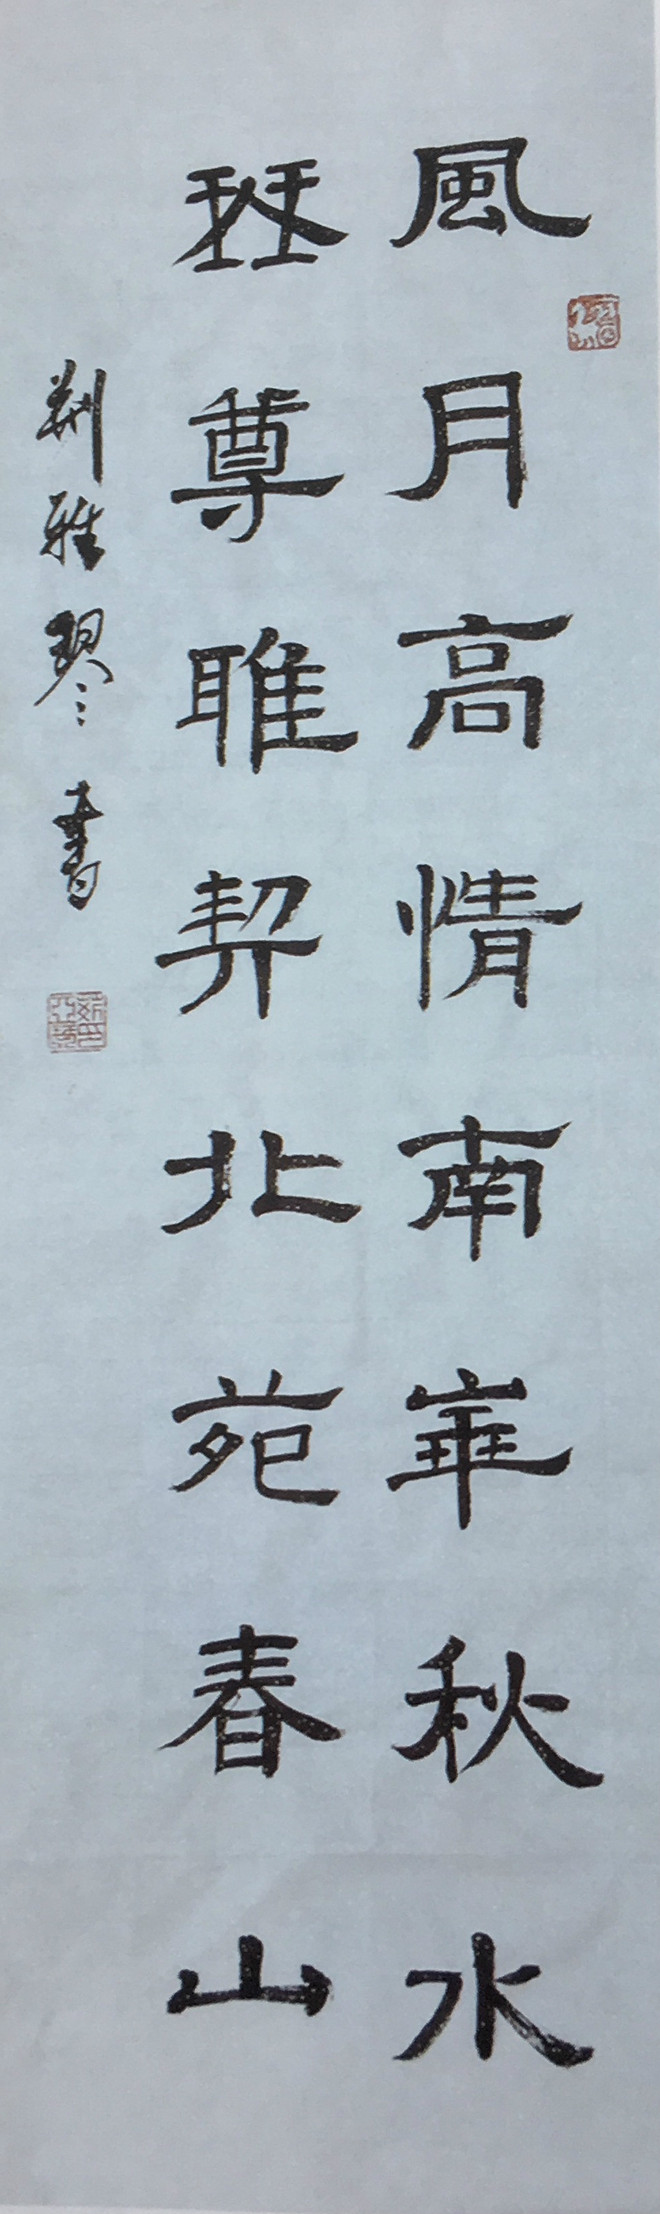 風月高情南華秋水
琴尊雅契北苑春山
荆雅琴書